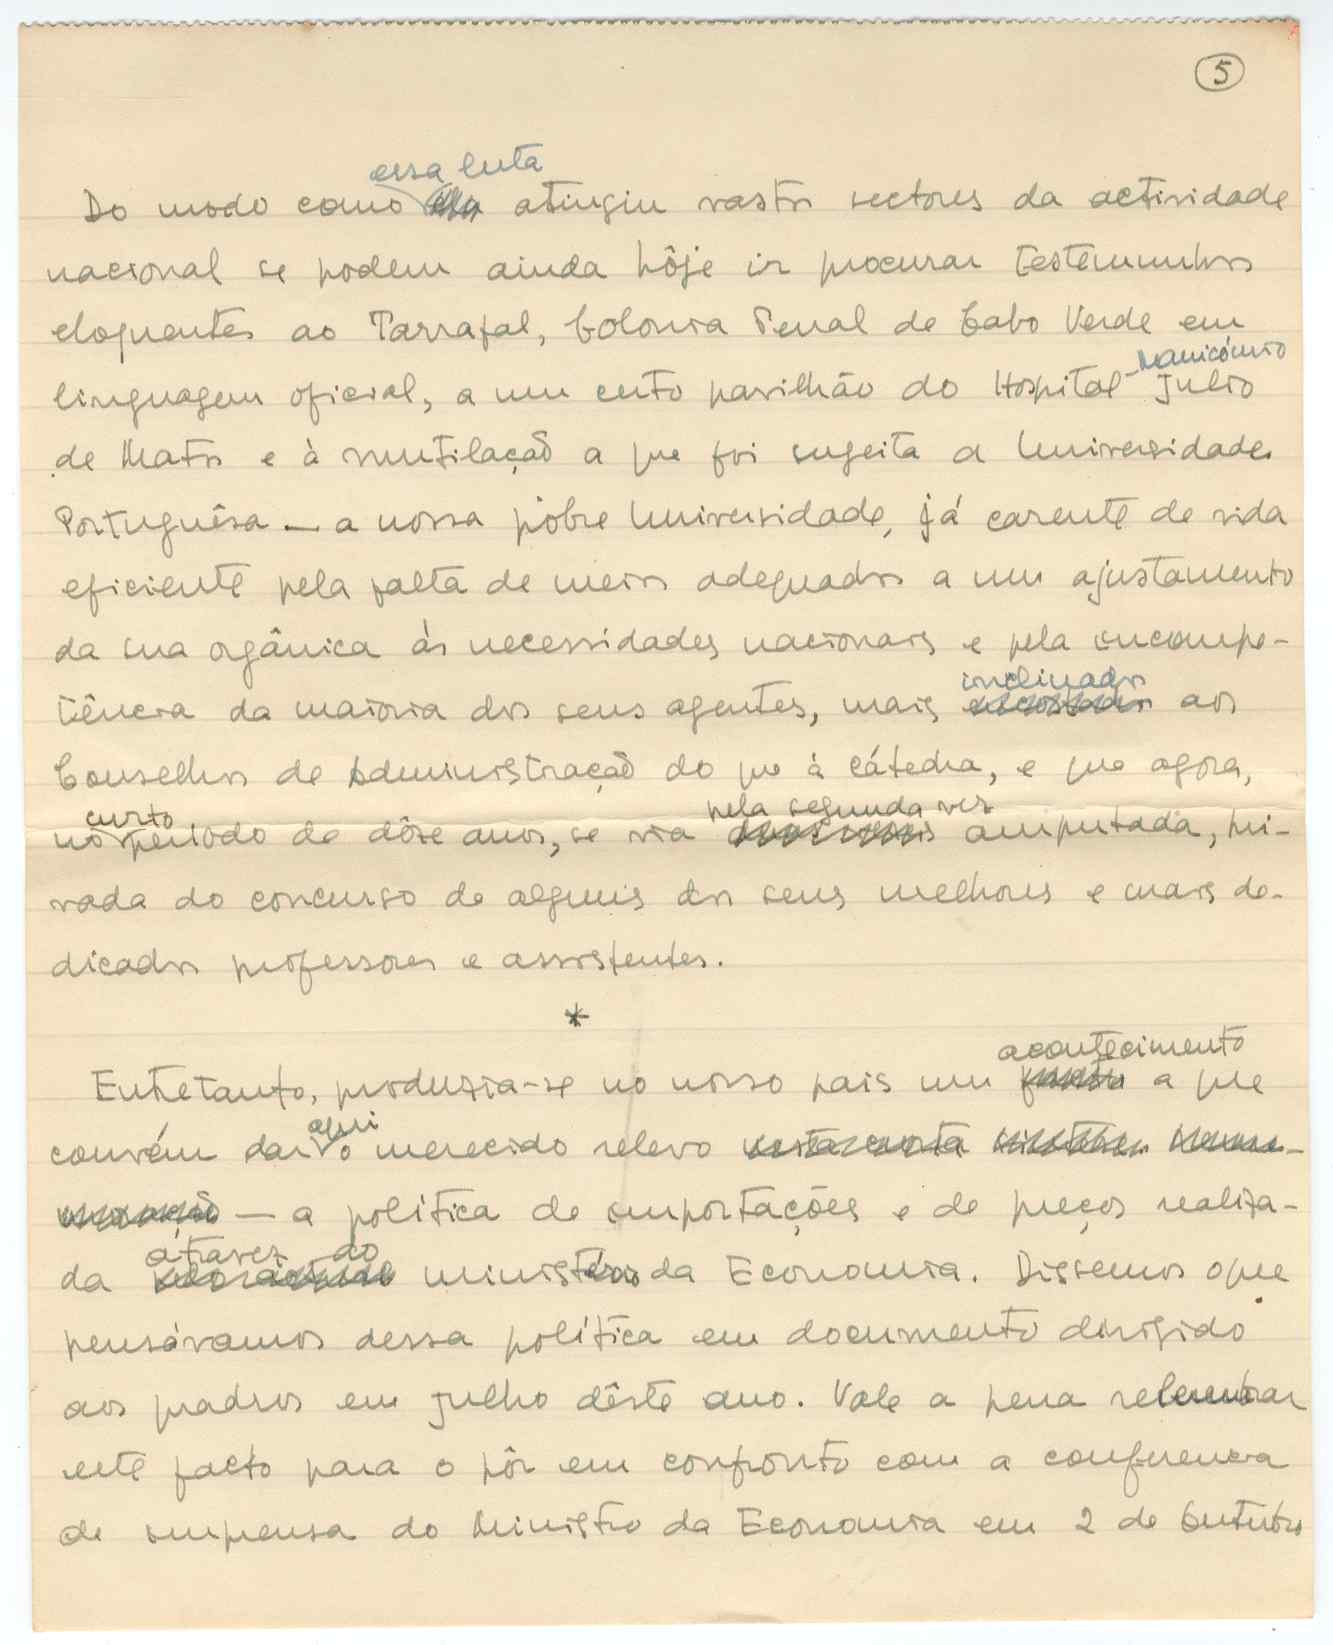 5
essa luta
Do modo como ela atingiu vastos sectores da actividade
nacional se podem ainda hôje ir procurar testemunhos
eloquentes ao Tarrafal, Colonia Penal de Cabo Verde em
-Manicómio
linguagem oficial, a um certo pavilhão do Hospital Julio
de Matos e à mutilação a que foi sugeita a Universidade
Portuguêsa — a nossa póbre Universidade, já carente de vida
eficiente pela falta de meios adequados a um ajustamento
da sua orgânica ás necessidades nacionais e pela incompe-
inclinados
tência da maioria dos seus agentes, mais encostados aos
Conselhos de Administração do que à cátedra, e que agora,
curto pela segunda vez
no periodo de dôze anos, se via amputada, pri-
vada do concurso de alguns dos seus melhores e mais de-
dicados professores e assistentes.
*
acontecimento
Entretanto, produzia-se no nosso pais um a que
aqui
convém dar o merecido relevo nesta carta
— a política de importações e de preços realiza-
átravez do
da ministério da Economia. Dissemos o que
pensávamos dessa política em documento dirigido
aos quadros em julho dêste ano. Vale a pena relembrar
este facto para o pôr em confronto com a conferencia
de imprensa do Ministro da Economia em 2 de Outubro